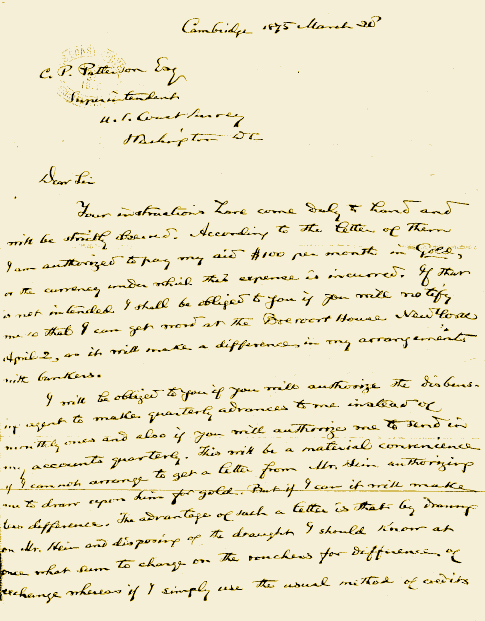 Cambridge 1875 March 30
C. P. Patterson Esq
Superintendent
U.S. Coast Survey
Washington DC
Dear Sir
Your instructions have come duly to hand and
will be strictly observed. According to the letter of them
I am authorized to pay my aid $100 per month in Gold,
or the currency under which this expense is incurred. If that
is not intended I shall be obliged to you if you will notify
me so that I can get word at the Brevoort House New York
April 2, as it will make a difference in my arrangements
with bankers.
I will be obliged to you if you will authorize the disburs-
ing agent to make quarterly advances to me instead of
monthly ones and also if you will authorize me to send in
my accounts quarterly. This will be a material convenience
if I cannot arrange to get a letter from Mr. Hein authorizing
me to draw upon him for gold. But if I can it will make
less difference. The advantage of such a letter is that by drawing
on Mr. Hein and disposing of the draught I should know at
once what sum to charge on the vouchers for difference of
exchange whereas if I simply use the usual method of credits